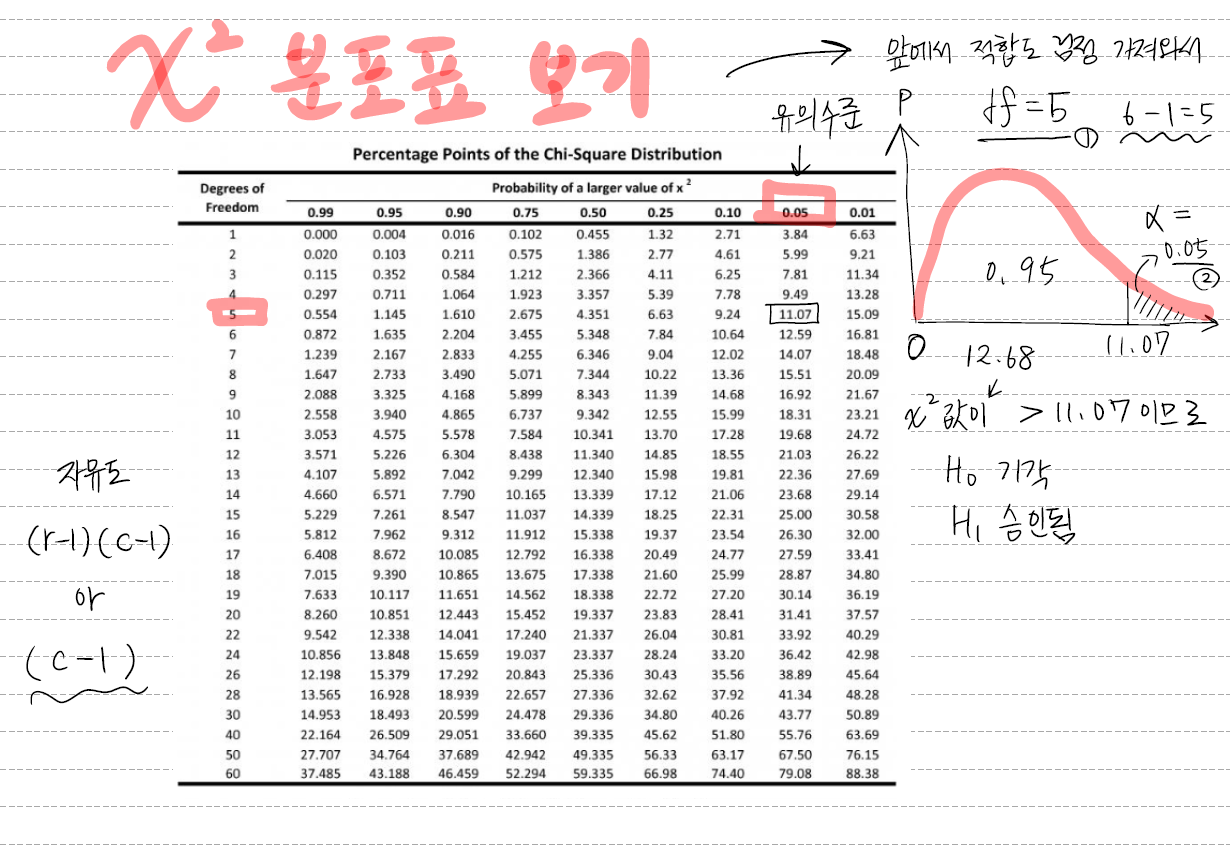 χ² 분포표 보기
앞에서 적합도 검정 가져와서
유의수준
df = 5 ①
6 - 1 = 5
P
α =
0.05
②
0.95
0
11.07
12.68
χ² 값이 > 11.07 이므로
H₀ 기각
H₁ 승인됨
자유도
(r-1)(c-1)
아
(c-1)
Percentage Points of the Chi-Square Distribution
Degrees of Freedom Probability of a larger value of x ²
0.99 0.95 0.90 0.75 0.50 0.25 0.10 0.05 0.01
1 0.000 0.004 0.016 0.102 0.455 1.32 2.71 3.84 6.63
2 0.020 0.103 0.211 0.575 1.386 2.77 4.61 5.99 9.21
3 0.115 0.352 0.584 1.212 2.366 4.11 6.25 7.81 11.34
4 0.297 0.711 1.064 1.923 3.357 5.39 7.78 9.49 13.28
5 0.554 1.145 1.610 2.675 4.351 6.63 9.24 11.07 15.09
6 0.872 1.635 2.204 3.455 5.348 7.84 10.64 12.59 16.81
7 1.239 2.167 2.833 4.255 6.346 9.04 12.02 14.07 18.48
8 1.647 2.733 3.490 5.071 7.344 10.22 13.36 15.51 20.09
9 2.088 3.325 4.168 5.899 8.343 11.39 14.68 16.92 21.67
10 2.558 3.940 4.865 6.737 9.342 12.55 15.99 18.31 23.21
11 3.053 4.575 5.578 7.584 10.341 13.70 17.28 19.68 24.72
12 3.571 5.226 6.304 8.438 11.340 14.85 18.55 21.03 26.22
13 4.107 5.892 7.042 9.299 12.340 15.98 19.81 22.36 27.69
14 4.660 6.571 7.790 10.165 13.339 17.12 21.06 23.68 29.14
15 5.229 7.261 8.547 11.037 14.339 18.25 22.31 25.00 30.58
16 5.812 7.962 9.312 11.912 15.338 19.37 23.54 26.30 32.00
17 6.408 8.672 10.085 12.792 16.338 20.49 24.77 27.59 33.41
18 7.015 9.390 10.865 13.675 17.338 21.60 25.99 28.87 34.80
19 7.633 10.117 11.651 14.562 18.338 22.72 27.20 30.14 36.19
20 8.260 10.851 12.443 15.452 19.337 23.83 28.41 31.41 37.57
22 9.542 12.338 14.041 17.240 21.337 26.04 30.81 33.92 40.29
24 10.856 13.848 15.659 19.037 23.337 28.24 33.20 36.42 42.98
26 12.198 15.379 17.292 20.843 25.336 30.43 35.56 38.89 45.64
28 13.565 16.928 18.939 22.657 27.336 32.62 37.92 41.34 48.28
30 14.953 18.493 20.599 24.478 29.336 34.80 40.26 43.77 50.89
40 22.164 26.509 29.051 33.660 39.335 45.62 51.80 55.76 63.69
50 27.707 34.764 37.689 42.942 49.335 56.33 63.17 67.50 76.15
60 37.485 43.188 46.459 52.294 59.335 66.98 74.40 79.08 88.38